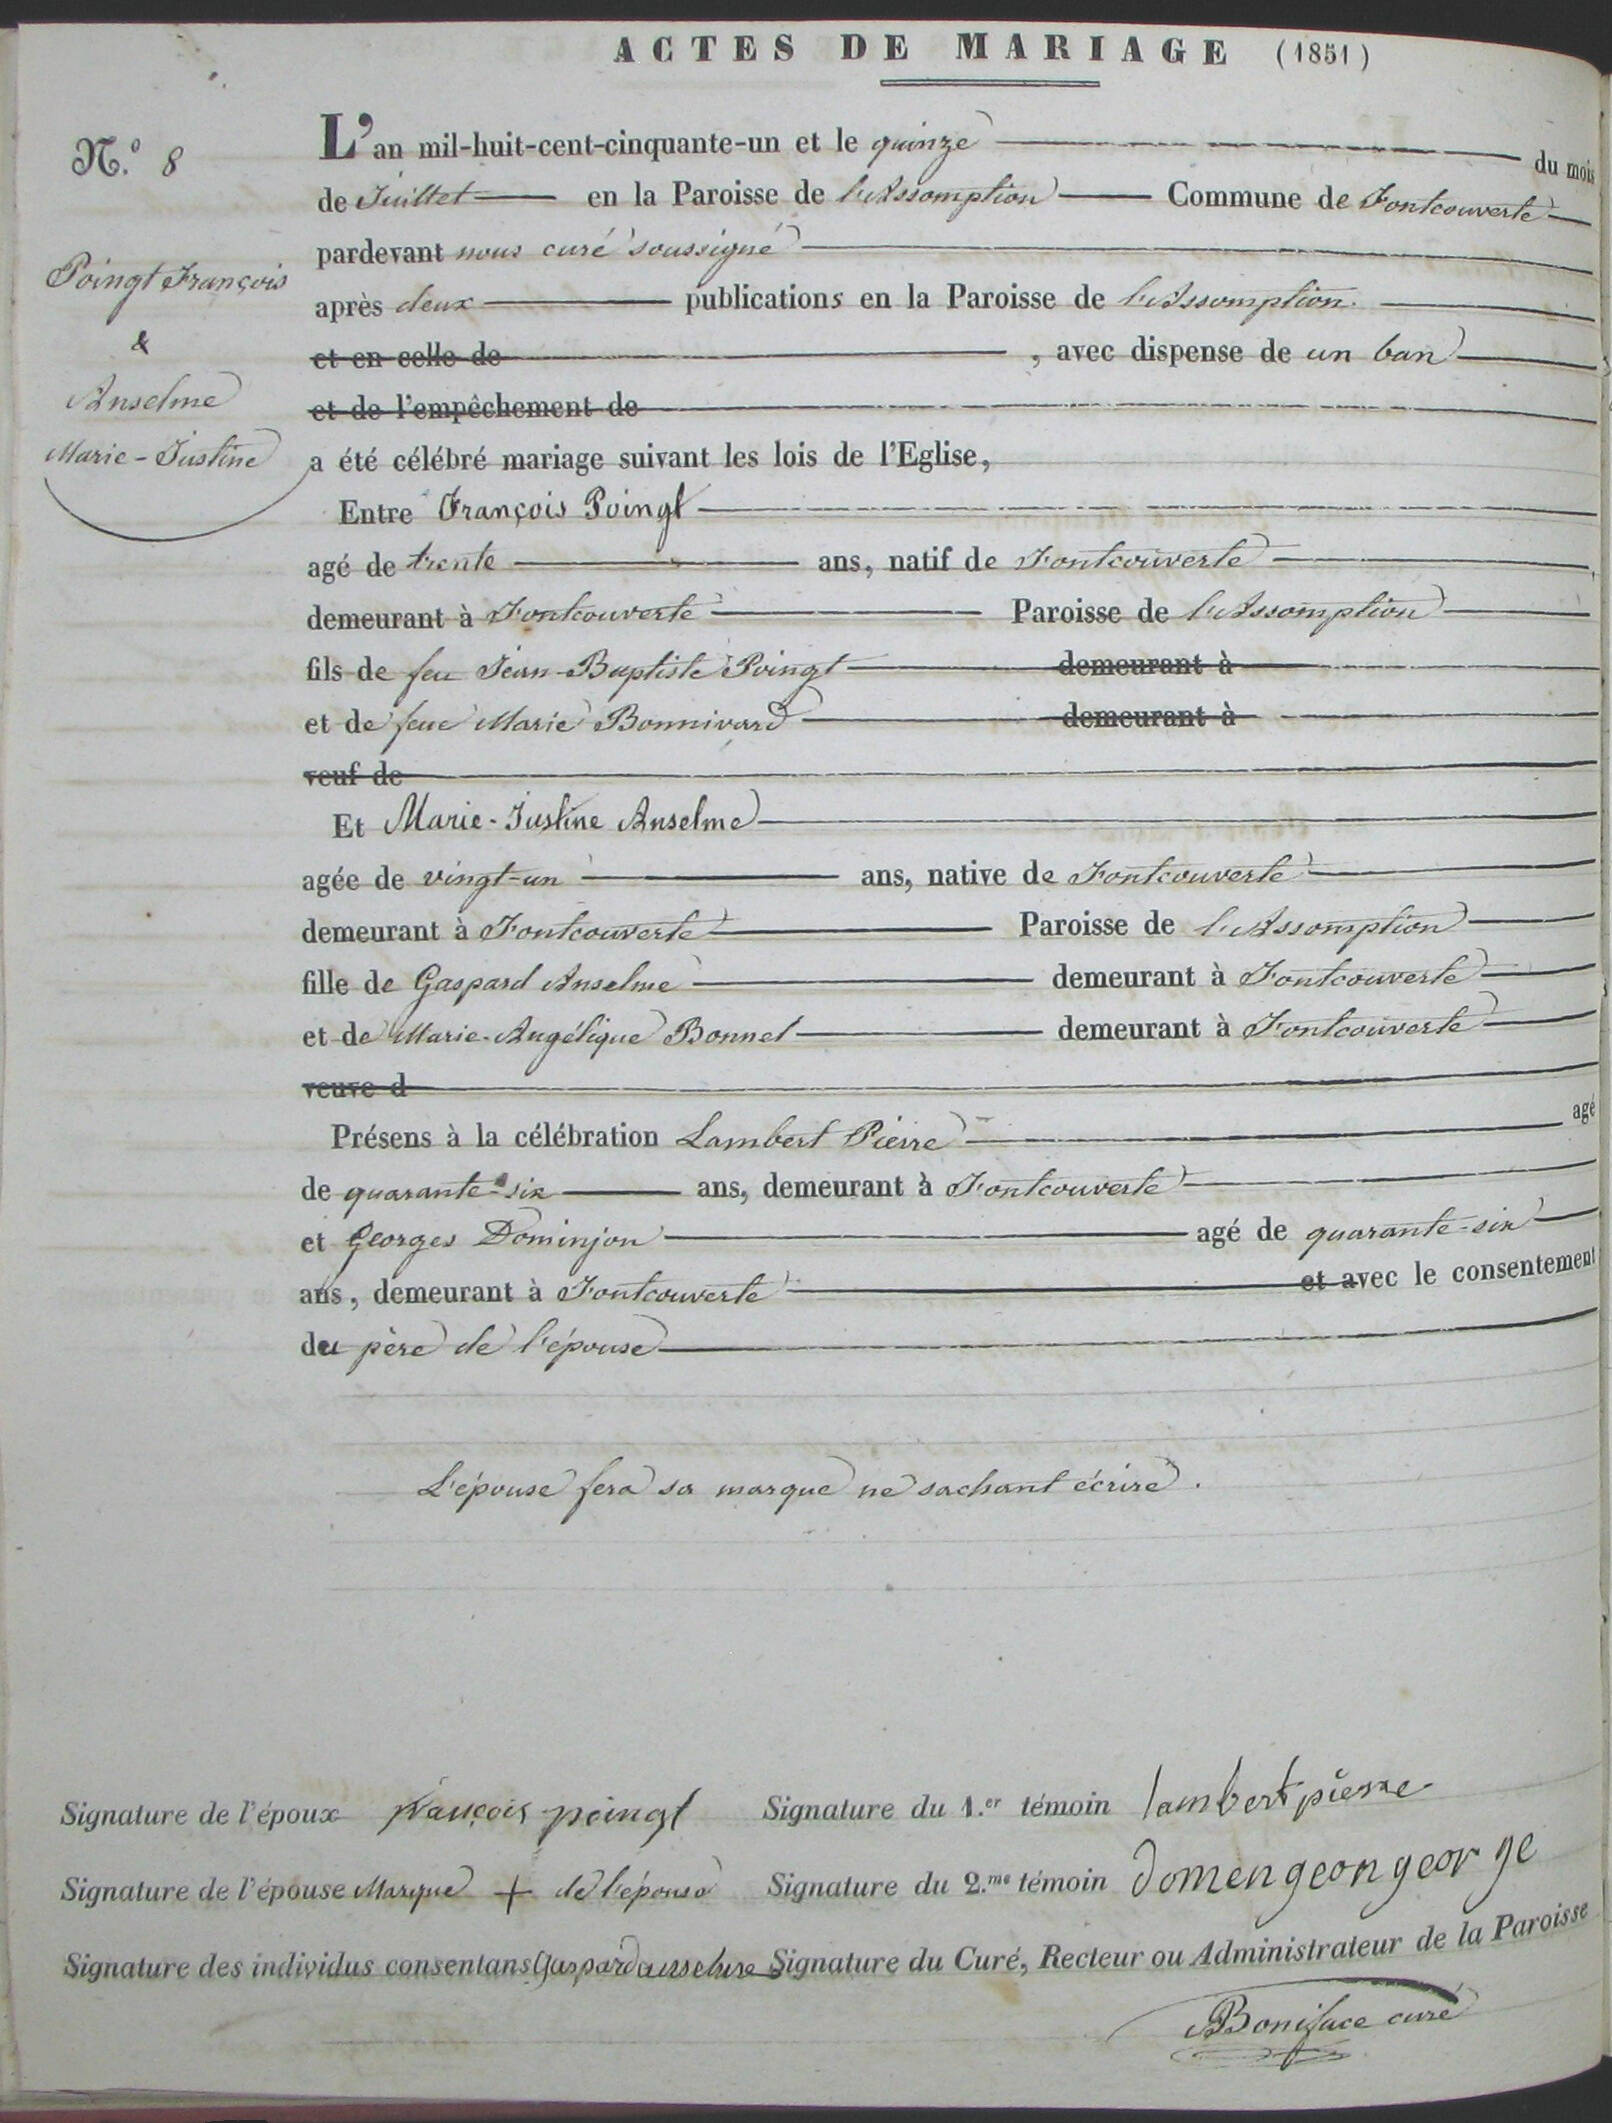 ACTES DE MARIAGE (1851)
N.º 8
Poingt François
&
Anselme
Marie-Justine
L'an mil-huit-cent-cinquante-un et le quinze du mois
de Juillet en la Paroisse de l'Assomption Commune de Fontcouverte
pardevant nous curé soussigné
après deux publications en la Paroisse de l'Assomption.
et en celle de , avec dispense de un ban
et de l'empêchement de
a été célébré mariage suivant les lois de l'Eglise,
Entre François Poingt
agé de trente ans, natif de Fontcouverte
demeurant à Fontcouverte Paroisse de l'Assomption
fils de feu Jean-Baptiste Poingt demeurant à
et de feue Marie Bonnivard demeurant à
veuf de
Et Marie-Justine Anselme
agée de vingt-un ans, native de Fontcouverte
demeurant à Fontcouverte Paroisse de l'Assomption
fille de Gaspard Anselme demeurant à Fontcouverte
et de Marie-Angélique Bonnet demeurant à Fontcouverte
veuve d
Présens à la célébration Lambert Pierre agé
de quarante-six ans, demeurant à Fontcouverte
et Georges Dominjon agé de quarante-six
ans, demeurant à Fontcouverte et avec le consentement
du père de l'épouse
L'épouse fera sa marque ne sachant écrire.
Signature de l'époux françois poingt Signature du 1.er témoin lambert pierre
Signature de l'épouse Marque + de l'épouse Signature du 2.me témoin domengeon george
Signature des individus consentans Gaspard anselme Signature du Curé, Recteur ou Administrateur de la Paroisse
Boniface curé